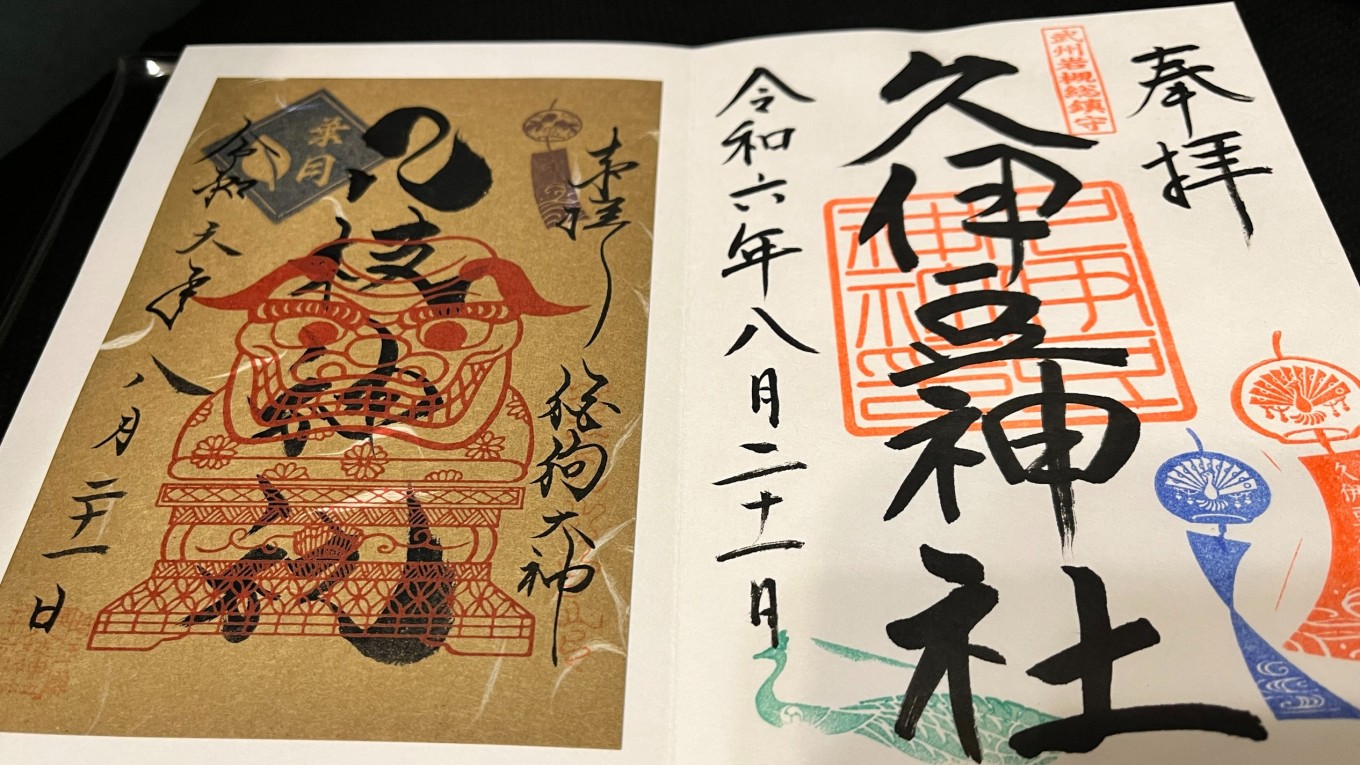 奉拝
武州岩槻総鎮守
久伊豆神社
令和六年八月二十一日
久伊
奉拝
狛狗大神
八枝神社
葉月
令和六年八月二十一日